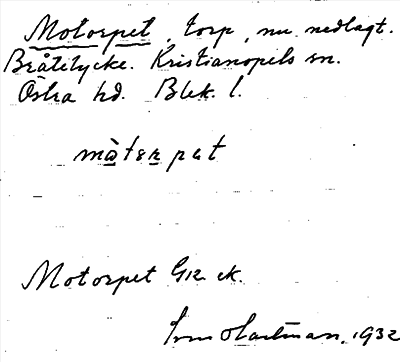 Motorpet, torp, nu nedlagt.
Bråtelycke. Kristianopels sn.
Östra hd. Blek. l.
Motorpet G12 ek.
Hartman. 1932